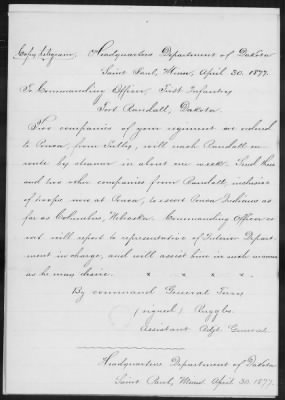 Copy telegram. Headquarters Department of Dakota
Saint Paul, Minn, April 30. 1877.
To Commanding Officer, First Infantry
Fort Randall, Dakota.
Two companies of your regiment as ordered
to Ponca, from Sully, will reach Randall en
route by steamer in about one week. Send these
and two other companies from Randall, inclusive
of troops now at Ponca, to escort Ponca Indians as
far as Columbus, Nebraska. Commanding Officer es
cort will report to representative of Interior Depart
ment in charge, and will assist him in such manner
as he may desire. x x x x
By command General Terry
(signed) Ruggles
Assistant Adjt. General.
Headquarters Department of Dakota
Saint Paul, Minn. April 30. 1877.